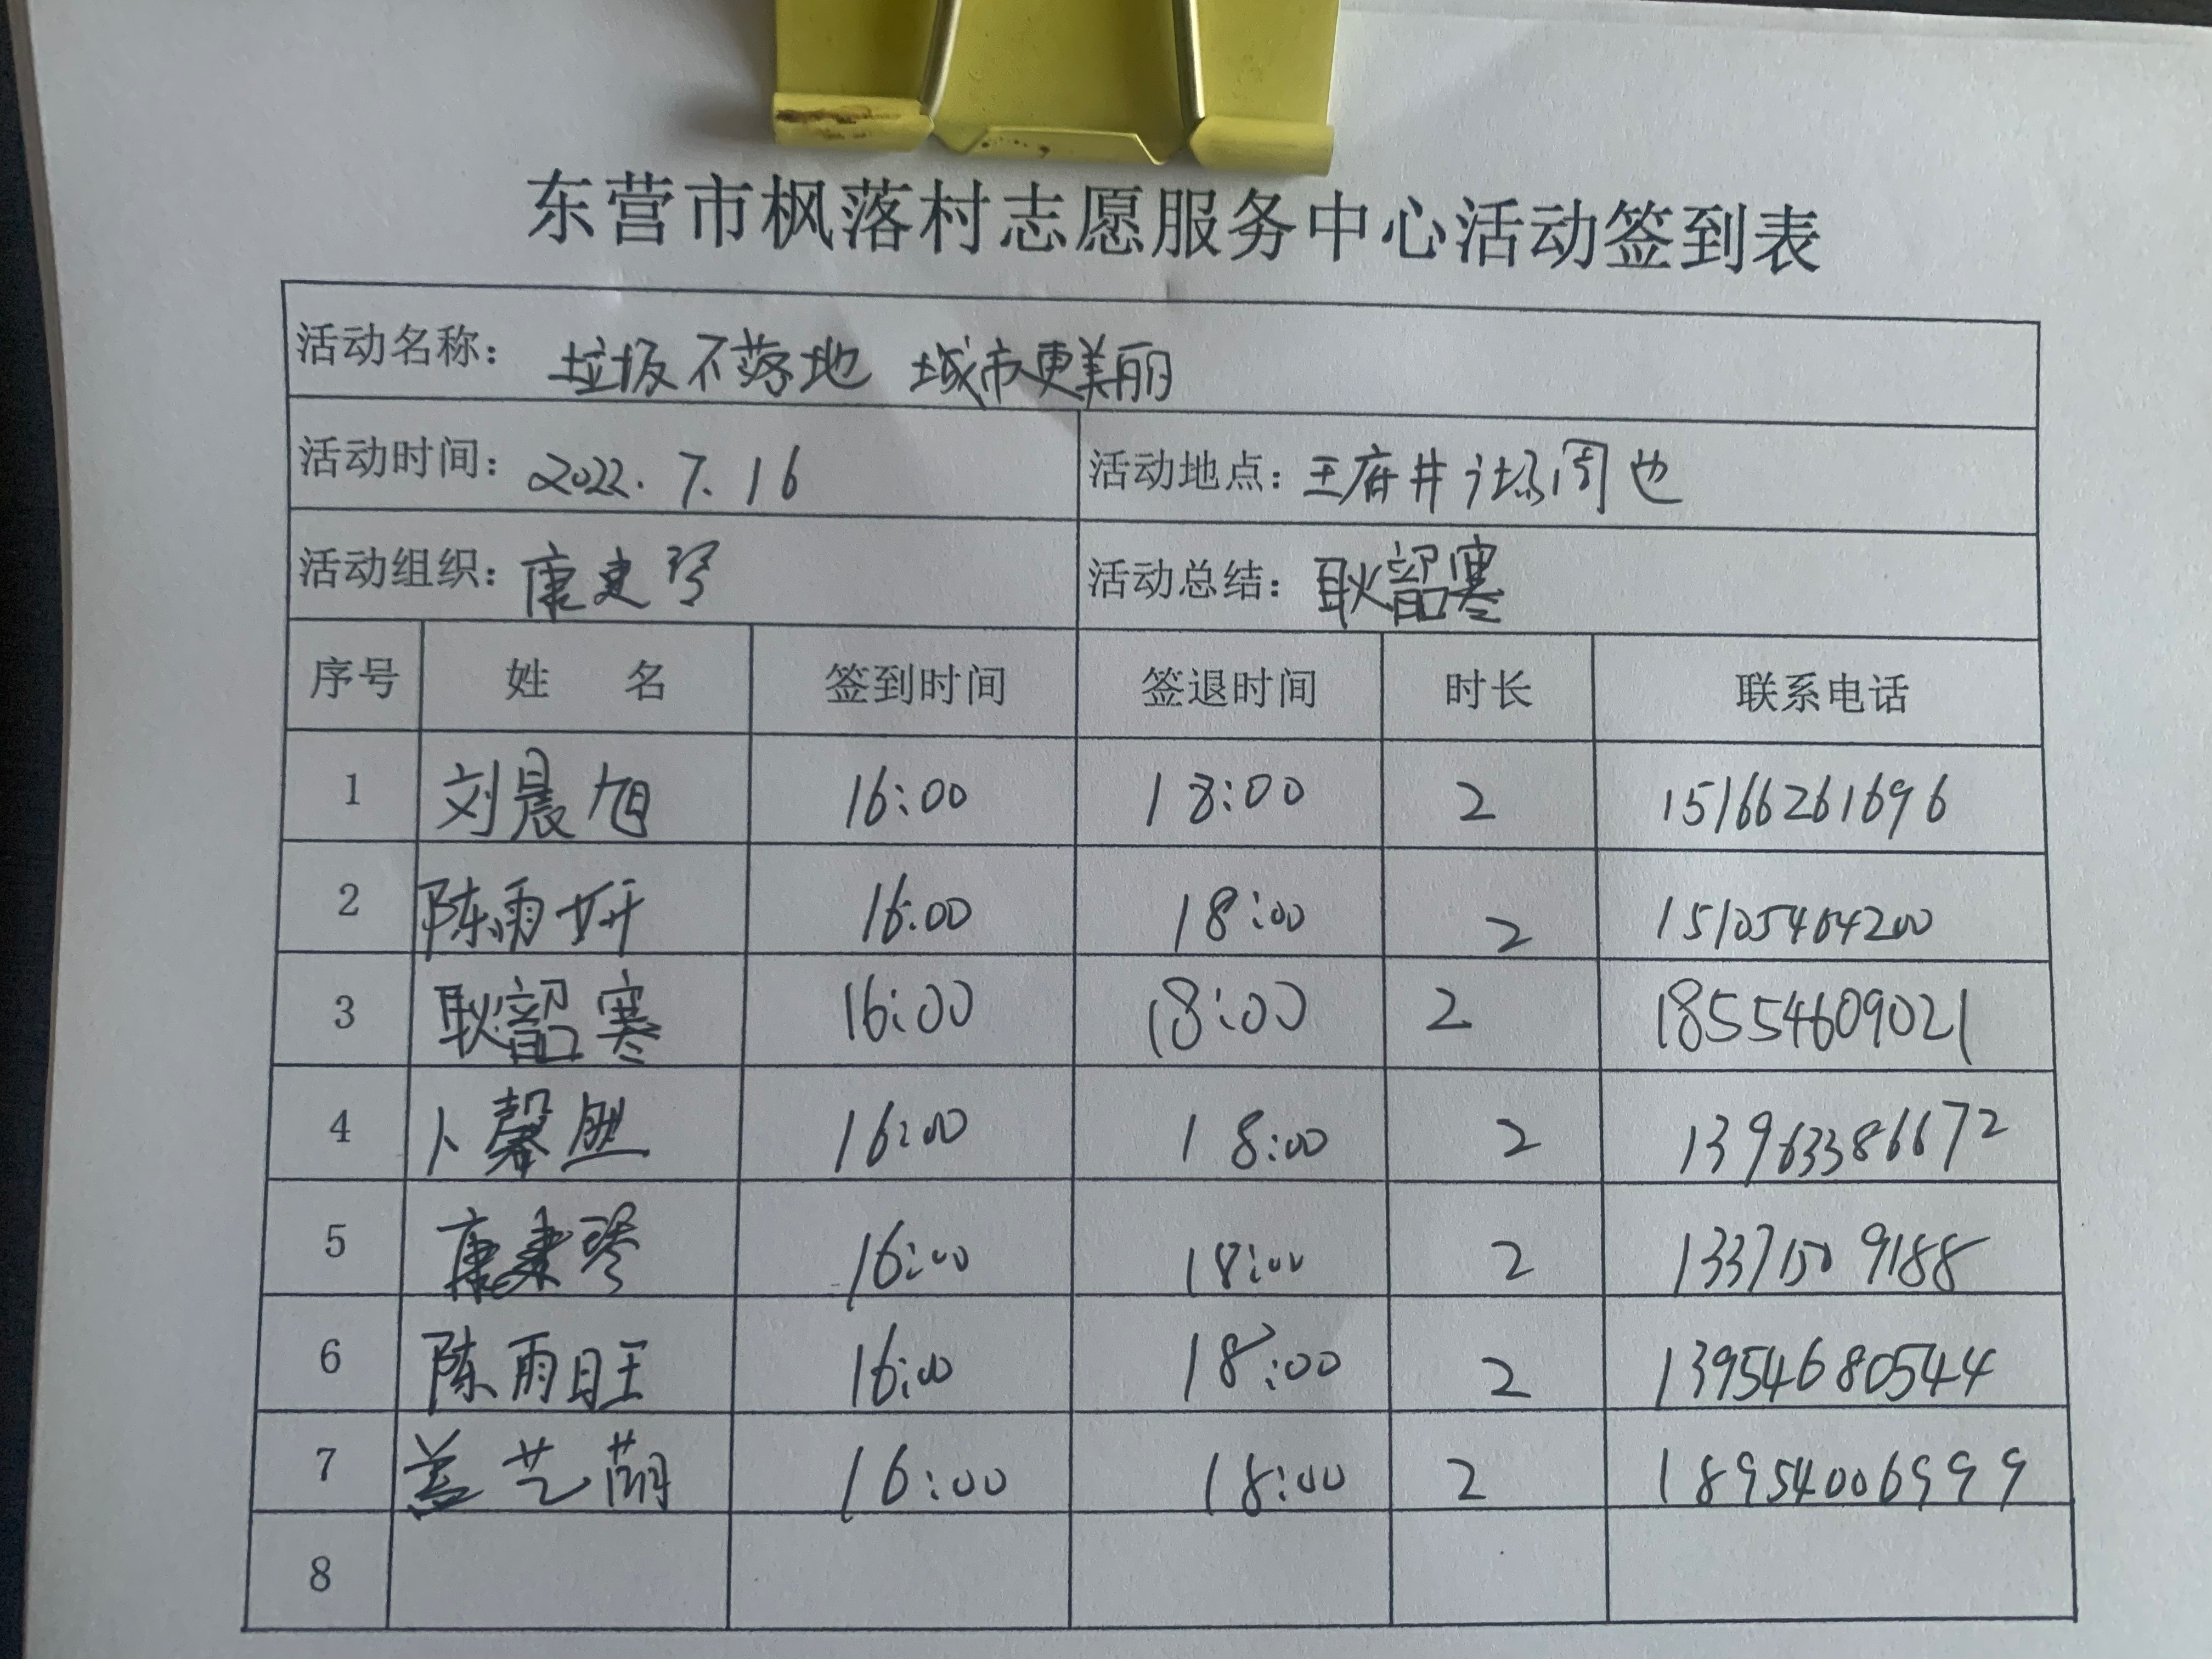 东营市枫落村志愿服务中心活动签到表
活动名称： 垃圾不落地 城市更美丽
活动时间： 2022.7.16 活动地点： 王府井
活动组织： 康建琴 活动总结： 耿韶寒
序号 姓 名 签到时间 签退时间 时长 联系电话
1 刘晨旭 16:00 18:00 2 15166261696
2 陈雨妍 16:00 18:00 2 15105464200
3 耿韶寒 16:00 18:00 2 18554609021
4 卜馨然 16:00 18:00 2 13963386672
5 康建琴 16:00 18:00 2 13371509188
6 陈雨旺 16:00 18:00 2 13954680544
7 盖艺萌 16:00 18:00 2 18954006999
8